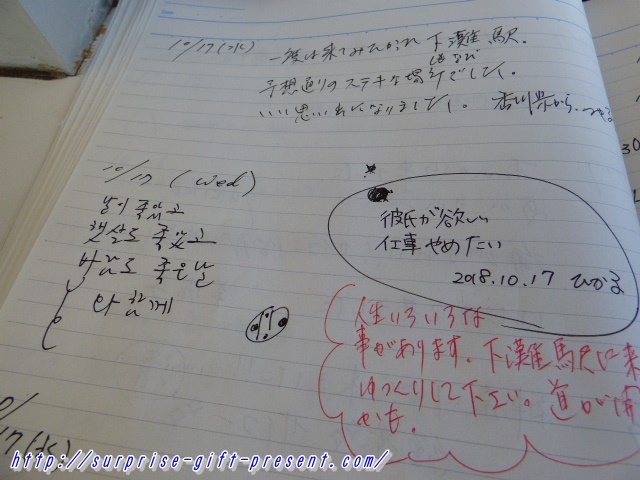 10/17(水) 一度は来てみたかった 下灘駅。
予想通りのステキな場所でした。
いい思い出になりました。 香川県から
10/17 (wed)
날이 좋았고
햇살도 좋았고
바람도 좋은 날
다 함께
彼氏が欲しい
仕事やめたい
2018.10.17 ひかる
人生いろいろな
事があります。下灘駅に来
ゆっくりして下さい。道が開
かも。
17(水)
http://surprise-gift-present.com/